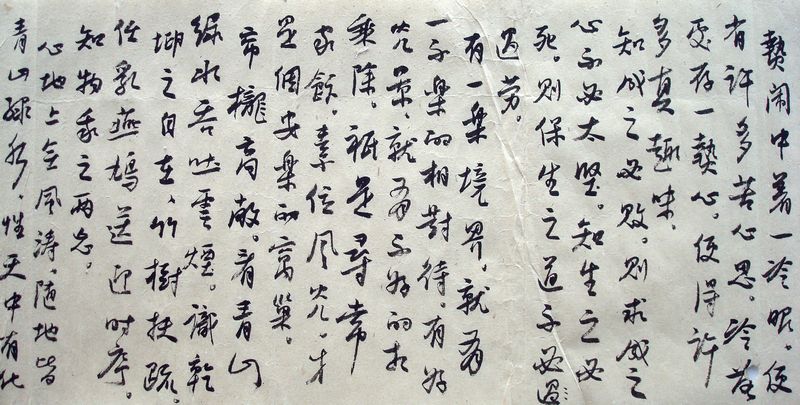 熱鬧中着一冷眼。便
省許多苦心思。冷落
處存一熱心。便得許
多真趣味。
知成之必敗。則求成之
心不必太堅。知生之必
死。則保生之道不必過
過劳。
有一樂境界。就有
一不樂的相對待。有好
光景。就有不好的相
乘除。祇是尋常
家飯。素位風光。才
是個安樂的窩巢。
帘櫳高敞。看青山
綠水吞吐雲煙。識乾
坤之自在。竹樹扶疏。
任乳燕鳩送迎时序。
知物我之两忘。
心地上無風涛。随地皆
青山綠水。性天中有化